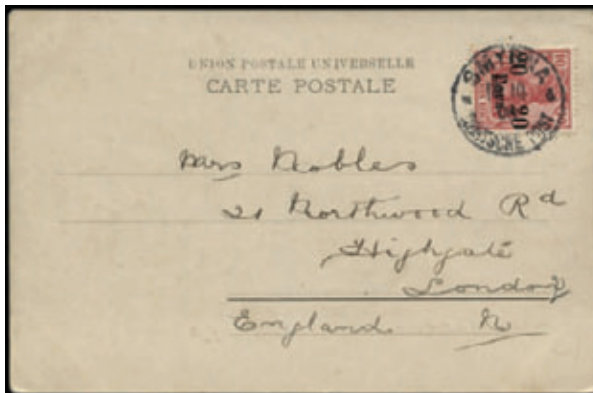 UNION POSTALE UNIVERSELLE
CARTE POSTALE
SMYRNA
DEUTSCHE POST
20 20
Para
10
Mrs Nobles
21 Northwood Rd
Highgate
London
England. N